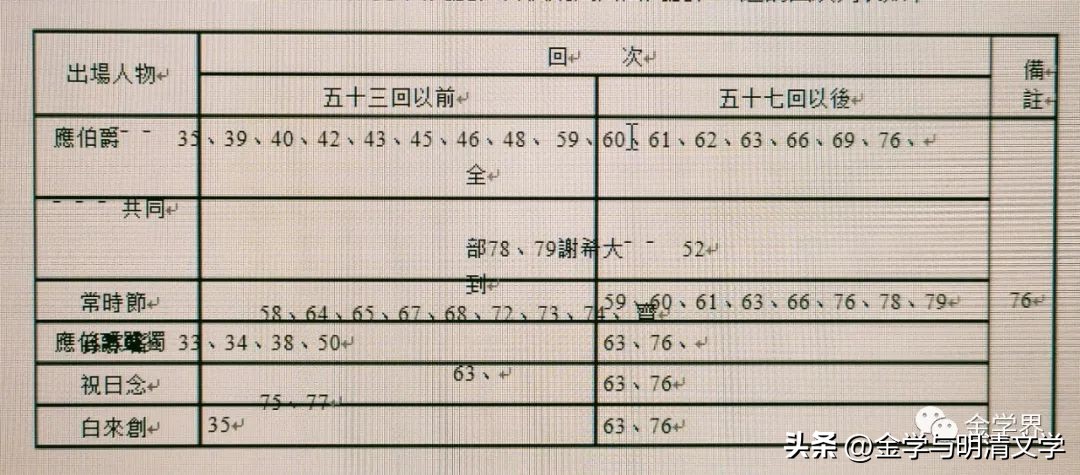 出場人物
回 次
備
註
五十三回以前
五十七回以後
應伯爵
35、39、40、42、43、45、46、48、
59、60、61、62、63、66、69、76、
全
共同
部78、79謝希大 52
到
常時節
58、64、65、67、68、72、73、74、齊
59、60、61、63、66、76、78、79
76
應伯 獨
33、34、38、50
63、76、
祝日念
63、
63、76
75、77
白來創
35
63、76
金学界
头条 @金学与明清文学